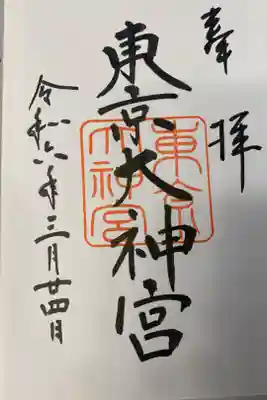 奉拝
東京大神宮
東京大神宮
令和六年三月廿四日